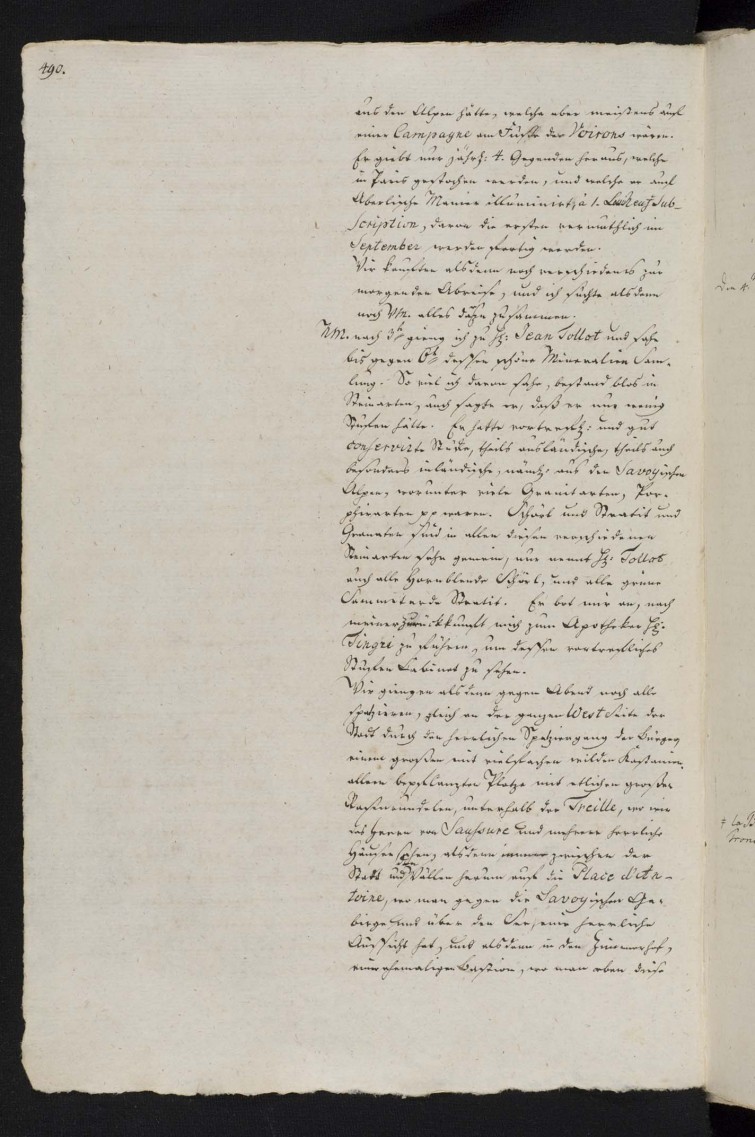 490.
aus den Alpen hätte, welche aber meistens auf
einer Campagne am Fusse der Voirons wären.
Er giebt nur jährl: 4. Gegenden heraus, welche
in Paris gestochen werden, und welche er auf
Aberlische Manier illuminirt, à 1. Sub-
scription, davon die ersten vermuthlich im
September werden fertig werden.
Wir kauften alsdenn noch verschiedenes zur
morgenden Abreise, und ich suchte alsdenn
noch Vm. alles dazu zusammen.
NM. nach 3h gieng ich zu H: Jean Tollot und sahe
bis gegen 6h dessen schöne Mineralien Sam-
lung. So viel ich davon sahe, bestand blos in
Steinarten, auch sagte er, daß er nur wenig
Stufen hätte. Er hatte vortrefl: und gut
conservirte Stücke, theils ausländische, theils auch
besonders inländische, näml: aus den Savoyischen
Alpen, worunter viele Granitarten, Por-
phirarten pp waren. Schörl und Steatit und
Granaten sind in allen diesen verschiedenen
Steinarten sehr gemein, nur nennt H: Tollot
auch alle Hornblende Schörl, und alle grüne
Sammeterde Steatit. Er bot mir an, nach
meiner zurückkunft mich zum Apotheker H:
Tingri zu führen, um dessen vortrefliches
Stufen Cabinet zu sehen.
Wir giengen alsdenn gegen Abend noch alle
spatzieren, gleich an der ganzen West Seite der
Stadt durch den herrlichen Spatziergang der Bürger,
einem großen mit vielfachen wilden Kastanien
alleen bepflanzten Platze mit etlichen großen
unterhalb der Treille, wo wir
des Herrn von Saussure und mehrere herrliche
Häuser sahen, alsdenn immer zwischen der
Stadt und den Wällen herum auf die Place d'An-
toine, wo man gegen die Savoyischen Ge-
birge und über den See eine herrliche
Aussicht hat, und alsdenn in den Zimmerhof,
einer ehemaligen Bastion, wo man eben diese